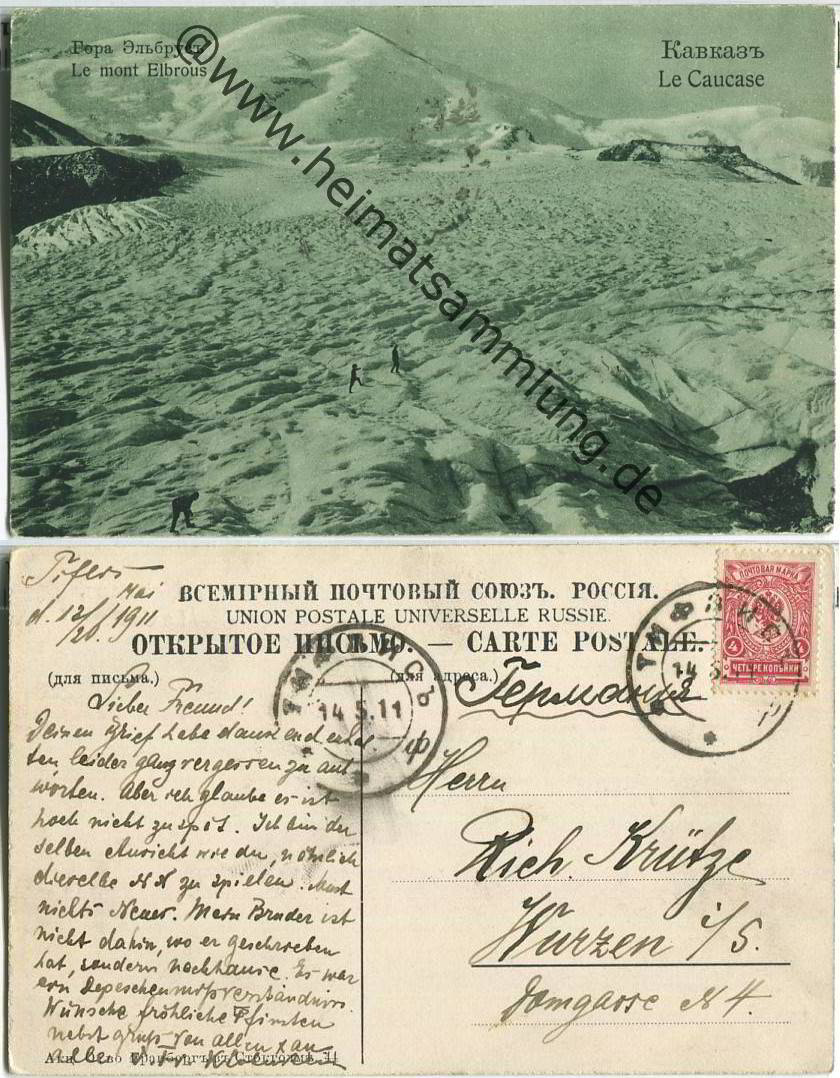 Гора Эльбрусъ
Le mont Elbrous
Кавказъ
Le Caucase
@www.heimatsammlung.de
Tiflis
d. 12/20. Mai 1911
ВСЕМІРНЫЙ ПОЧТОВЫЙ СОЮЗЪ. РОССІЯ.
UNION POSTALE UNIVERSELLE RUSSIE.
ОТКРЫТОЕ ПИСЬМО. — CARTE POSTALE.
(для письма.)
(для адреса.)
ПОЧТОВАЯ МАРКА
4 4
ЧЕТЫРЕ КОПѢЙКИ
ТИФЛИСЪ
14.5.11
ТИФЛИСЪ
14.5.11
Германия
Lieber Freund!
Deinen Brief habe dankend erhal-
ten leider ganz vergessen zu ant
worten. Aber ich glaube es ist
noch nicht zu spät. Ich bin der
selben Ansicht wie du, nähmlich
dieselbe NN zu spielen. Sonst
nichts Neues. Mein Bruder ist
nicht dahin, wo er geschrieben
hat, sondern nachhause. Es war
ein Depeschenmißverständniss.
Wünsche fröhliche Pfinsten
nebst Gruss von allen an
alle
Herrn
Rich. Krütze
Wurzen i/S.
Domgasse N 4.
Акц. О-во Гранбергъ въ Стокгольмѣ